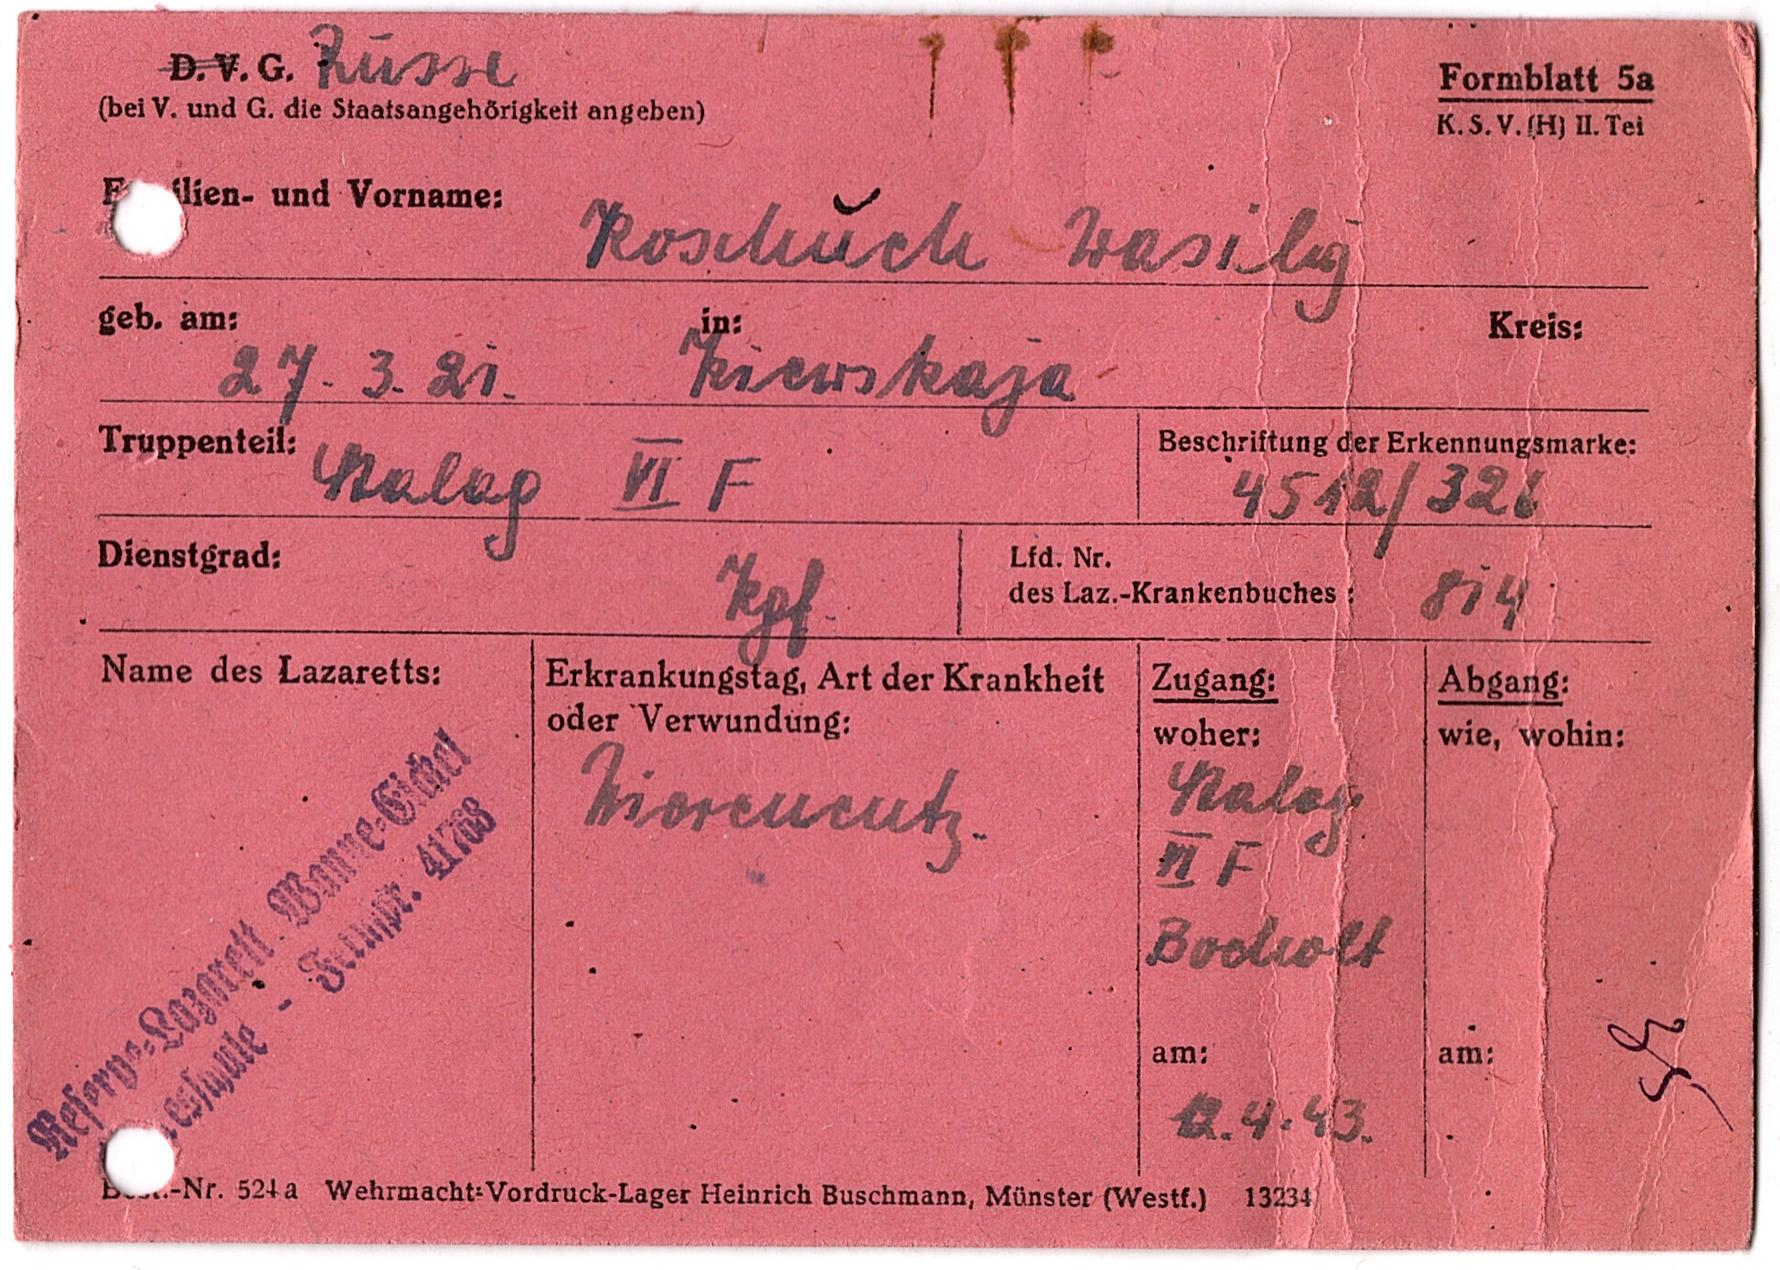 D. V. G. Russe
(bei V. und G. die Staatsangehörigkeit angeben)
Formblatt 5a
K. S. V. (H) II. Tei
Familien- und Vorname:
Koschuch Wasilij
geb. am: in: Kreis:
27. 3. 21. Kiewskaja
Truppenteil: Stalag VI F
Beschriftung der Erkennungsmarke:
4512/326
Dienstgrad: Kgf.
Lfd. Nr.
des Laz.-Krankenbuches: 814
Name des Lazaretts:
Reserve-Lazarett Wanne-Eickel
Fernspr. 41768
Erkrankungstag, Art der Krankheit
oder Verwundung:
Zugang:
woher:
Stalag
VI F
Bocholt
am:
.4.43.
Abgang:
wie, wohin:
am:
Best.-Nr. 524a Wehrmacht-Vordruck-Lager Heinrich Buschmann, Münster (Westf.) 13234